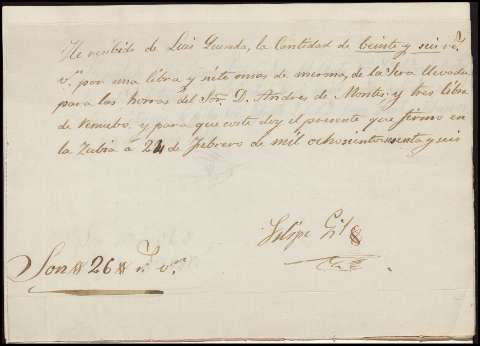 He recibido de Luis Queada, la Cantidad de beinte y seis r.s
v.n por una libra y siete onsas de merma, de la Sera llevada
para las honras del Sor. D. Andres de Montes y tres libra
de renuebo, y para que coste doy el presente que firmo en
la Zubia á 24 de Febrero de mil ochosientos y seis
Felipe Gil
Son # 26 # r.s v.n